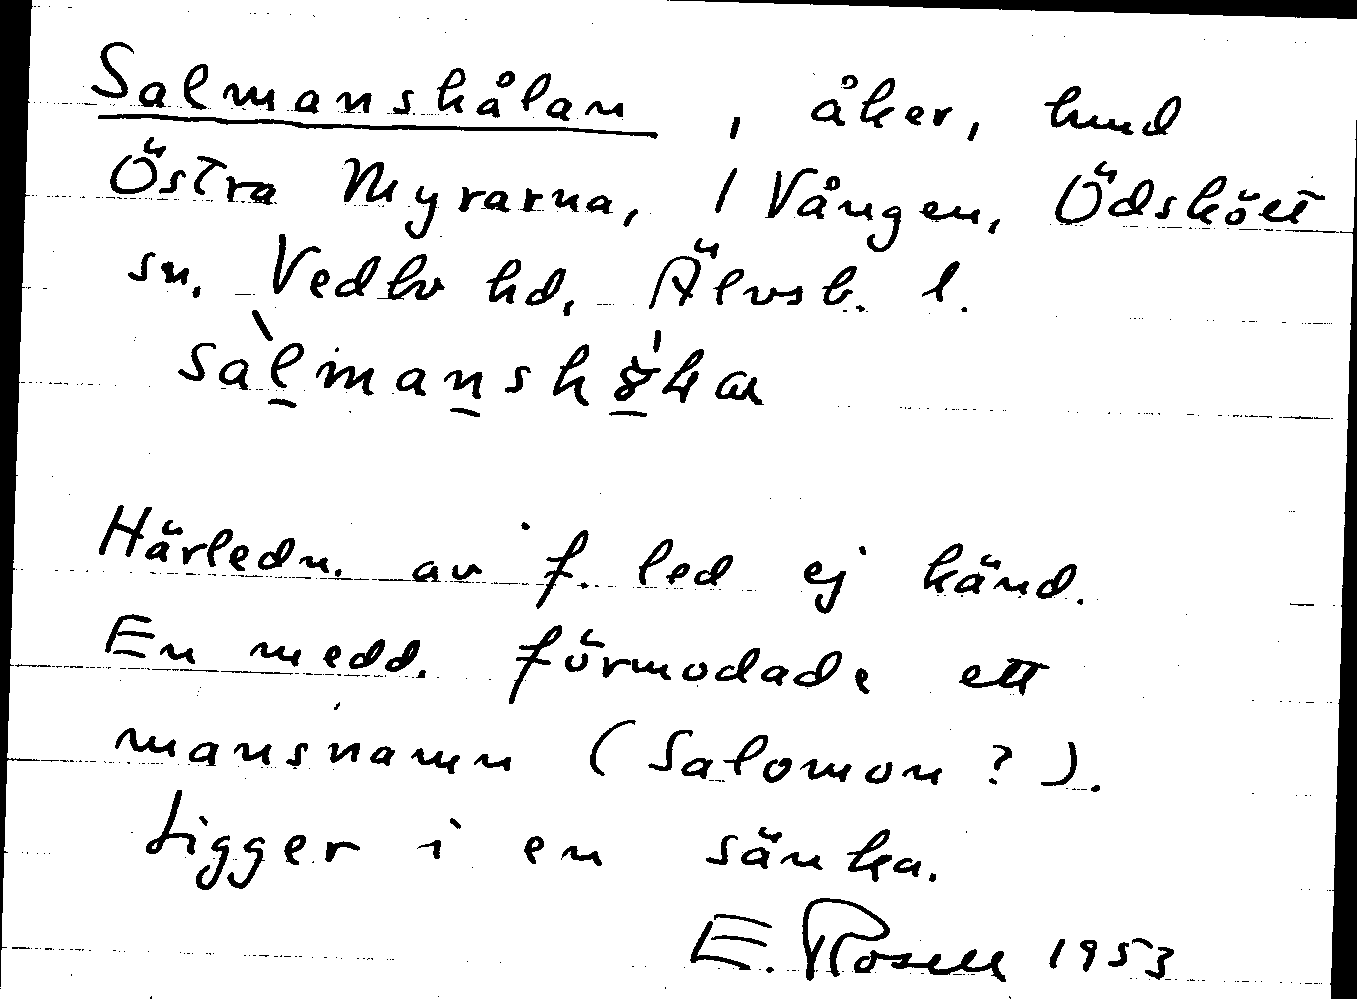 Salmanshålan, åker, hmd
Östra Myrarna, 1 Vången, Ödskölt
sn. Vedbo hd, Älvsb. l.
Härledn. av f. led ej känd.
En medd. förmodade ett
mansnamn (Salomon?).
Ligger i en sänka.
E. Rosell 1953